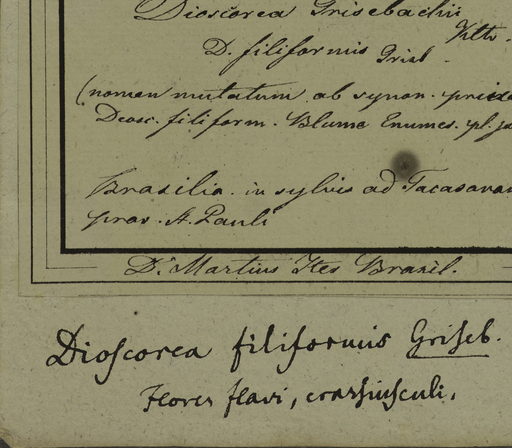 Dioscorea Grisebachii
Kth.
D. filiformis Grisb.
(nomen mutatum ob synon.
Diosc. filiform. Blume Enumer. pl.
Brasilia. in sylvis ad
prov. S. Pauli
Dr. Martius Iter Brasil.
Dioscorea filiformis Griseb.
Flores flavi, crassiusculi,